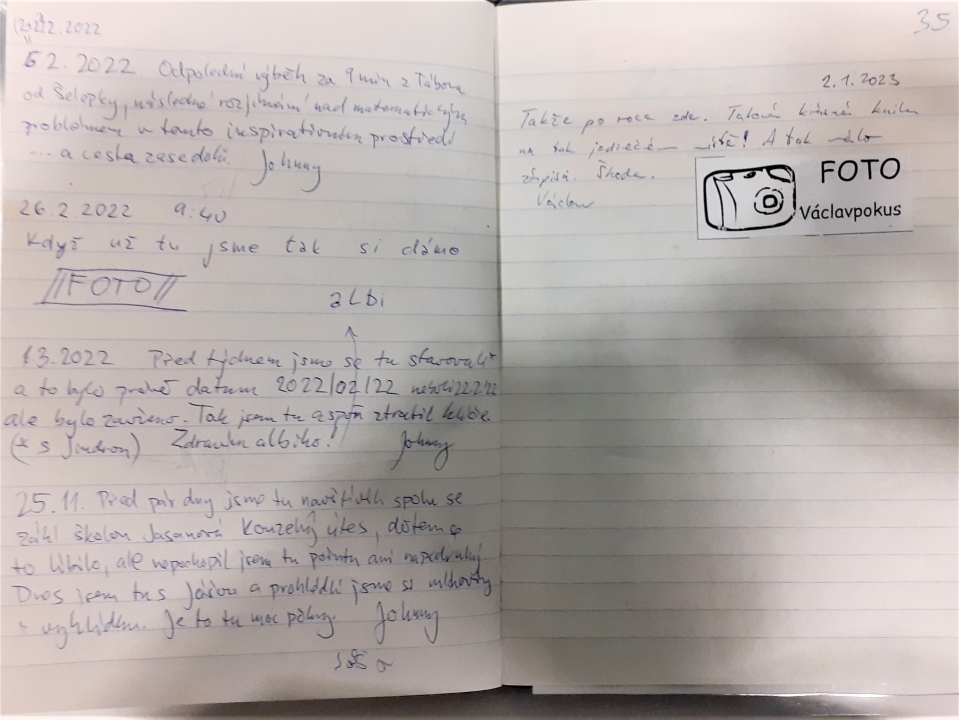 (2+2)2.2022
62.2022 Odpolední výběh za 9 min z Tábora
od Šelepky, následné rozjímání nad matematickým
problémem v tomto inspirativním prostředí
... a cesta zase dolů. Johnny
26.2.2022 9:40
Když už tu jsme tak si dáme
//FOTO//
albi
1.3.2022 Před týdnem jsme se tu stavovali*
a to bylo právě datum 2022/02/22 neboli 22.2.22
ale bylo zavřeno. Tak jsem tu aspoň ztratil klíče.
(* s Jindrou) Zdravím albiho! Johnny
25.11. Před pár dny jsme tu navštívili spolu se
zákl školou Jasanová Kouzelný útes, dětem se
to líbilo, ale nepochopil jsem tu pointu ani napodruhé.
Dnes jsem tu s a prohlédli jsme si
vyhlídku. Je to tu moc pěkný. Johnny
35
2.1.2023
Takže po roce zde. Taková krásná kniha
na tak jedinečném místě! A tak málo
zápisů. Škoda.
Václav
FOTO
Václavpokus